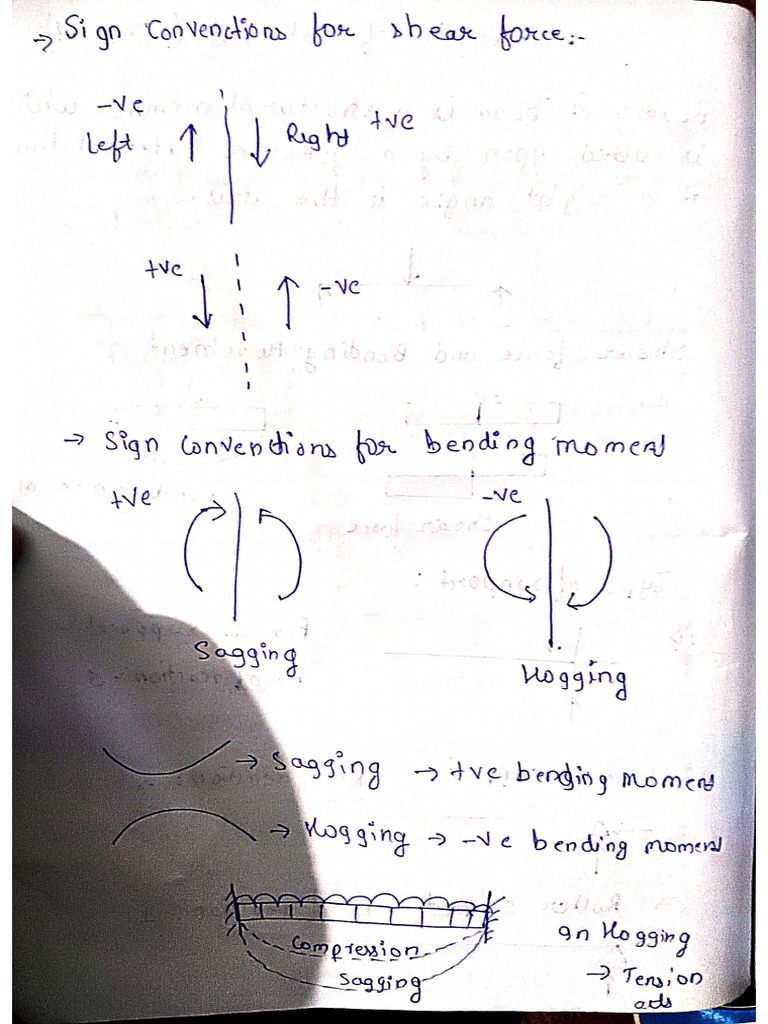 → Sign Conventions for shear force:-
-ve
Left
Right +ve
+ve
-ve
→ Sign Conventions for bending moment
+ve
-ve
Sagging
Hogging
→ Sagging → +ve bending moment
→ Hogging → -ve bending moment
Compression
Sagging
In Hogging
→ Tension
acts